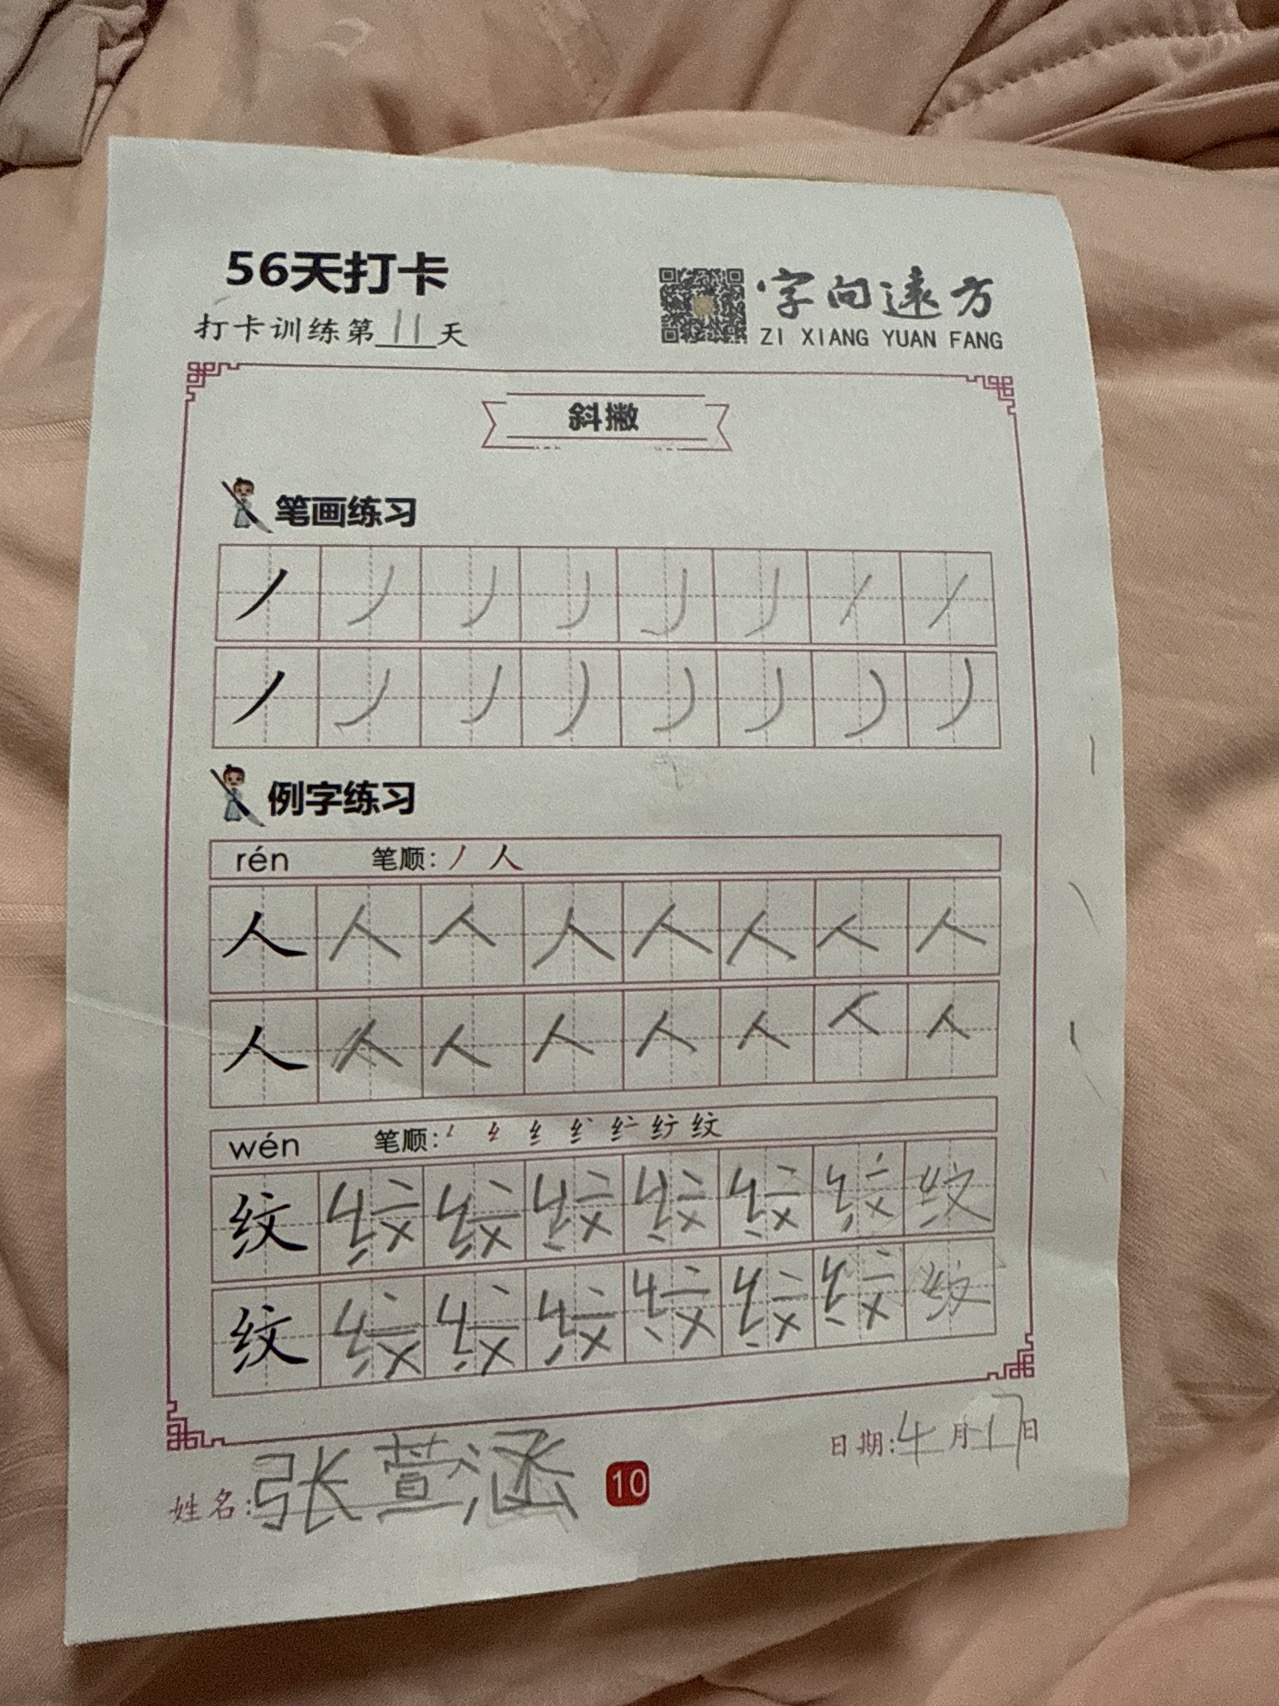 56天打卡
打卡训练第11天
字向远方
ZI XIANG YUAN FANG
斜撇
笔画练习
丿 丿 丿 丿 丿 丿 丿 丿
丿 丿 丿 丿 丿 丿 丿 丿
例字练习
rén 笔顺: 丿 人
人 人 人 人 人 人 人 人
人 人 人 人 人 人 人 人
wén 笔顺:
纹 纹 纹 纹 纹 纹 纹 纹
纹 纹 纹 纹 纹 纹 纹 纹
日期:4月17日
姓名:张萱涵
10